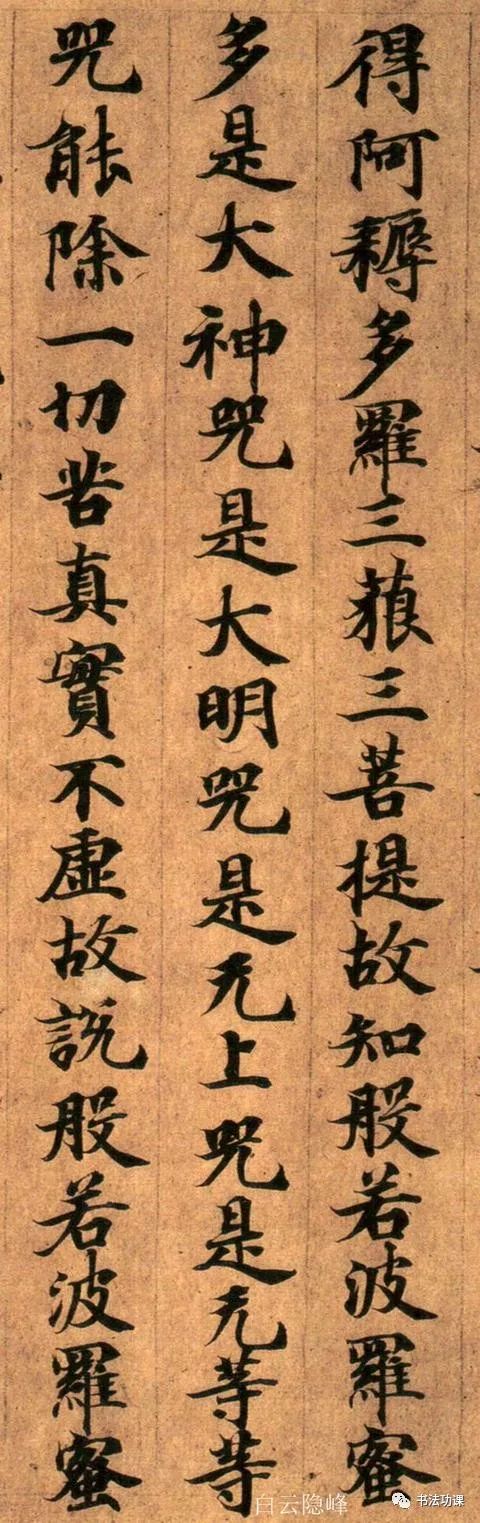 得阿耨多羅三藐三菩提故知般若波羅蜜
多是大神咒是大明咒是无上咒是无等等
咒能除一切苦真實不虛故說般若波羅蜜
白云隐峰
书法功课